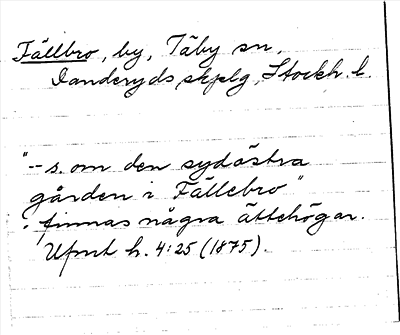 Fällbro, by, Täby sn,
Danderyds skplg, Stockh. l.
"-- s. om den sydöstra
gården i Fällebro"
finnas några ättehögar.
Ufmt h. 4:25 (1875).